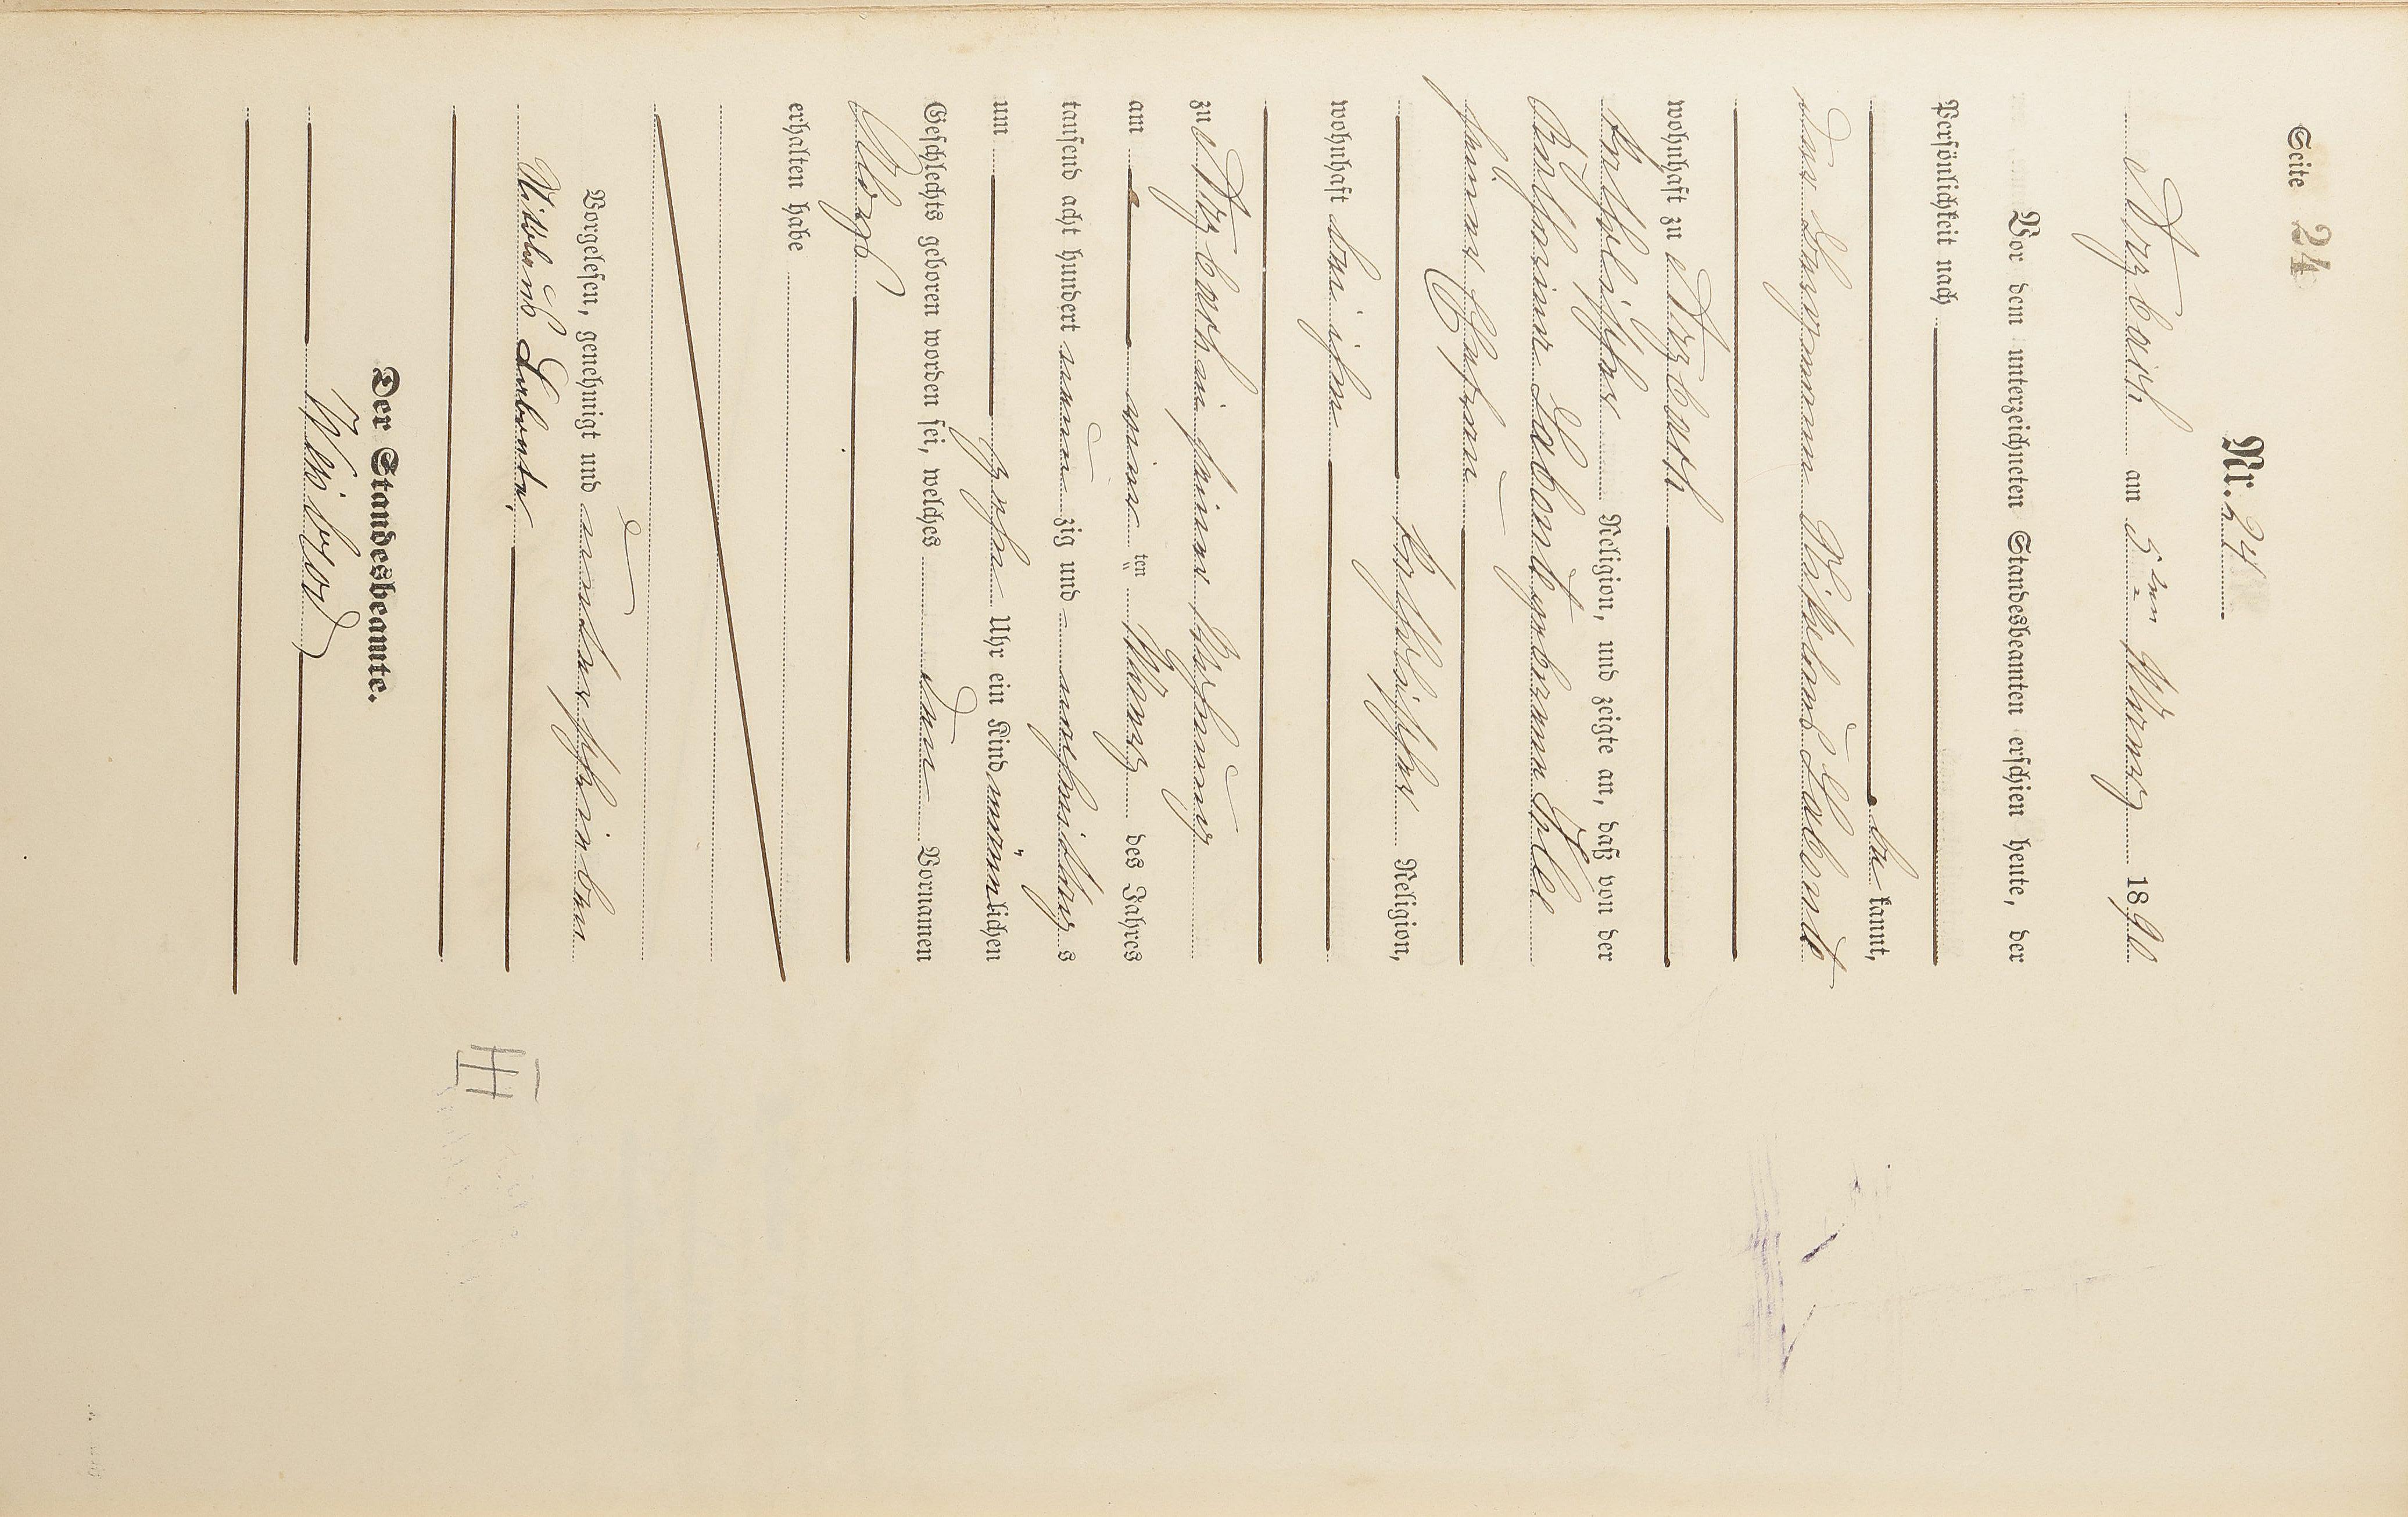 Seite 24
Nr. 24
Arzbach am 5ten März 1890
Vor dem unterzeichneten Standesbeamten erschien heute, der
Persönlichkeit nach
be kannt,
der Bergmann Wilhelm Labonte
wohnhaft zu Arzbach
katholischer Religion, und zeigte an, daß von der
Katharina Labonte geborenen
seiner Ehefrau
katholischer Religion,
wohnhaft bei ihm
zu Arzbach in seiner Wohnung
am ten März des Jahres
tausend acht hundert neun zig und nachmittag s
um zehn Uhr ein Kind männ lichen
Geschlechts geboren worden sei, welches den Vornamen
erhalten habe
Vorgelesen, genehmigt und unterschrieben
Wilhelm Labonte.
Der Standesbeamte.